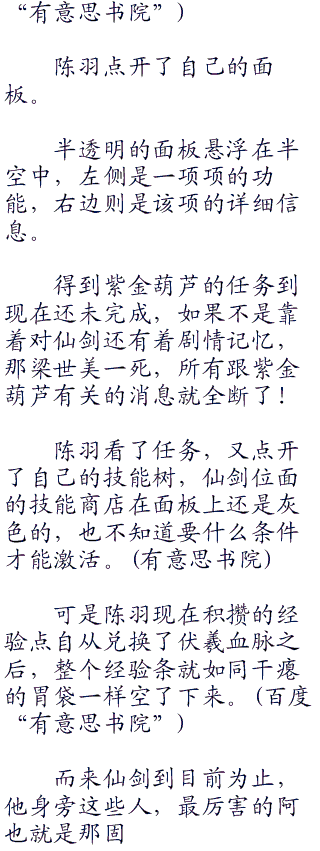 “有意思书院”)
陈羽点开了自己的面
板。
半透明的面板悬浮在半
空中，左侧是一项项的功
能，右边则是该项的详细信
息。
得到紫金葫芦的任务到
现在还未完成，如果不是靠
着对仙剑还有着剧情记忆，
那梁世美一死，所有跟紫金
葫芦有关的消息就全断了！
陈羽看了任务，又点开
了自己的技能树，仙剑位面
的技能商店在面板上还是灰
色的，也不知道要什么条件
才能激活。(有意思书院)
可是陈羽现在积攒的经
验点自从兑换了伏羲血脉之
后，整个经验条就如同干瘪
的胃袋一样空了下来。(百度
“有意思书院”)
而来仙剑到目前为止，
他身旁这些人，最厉害的阿
也就是那固